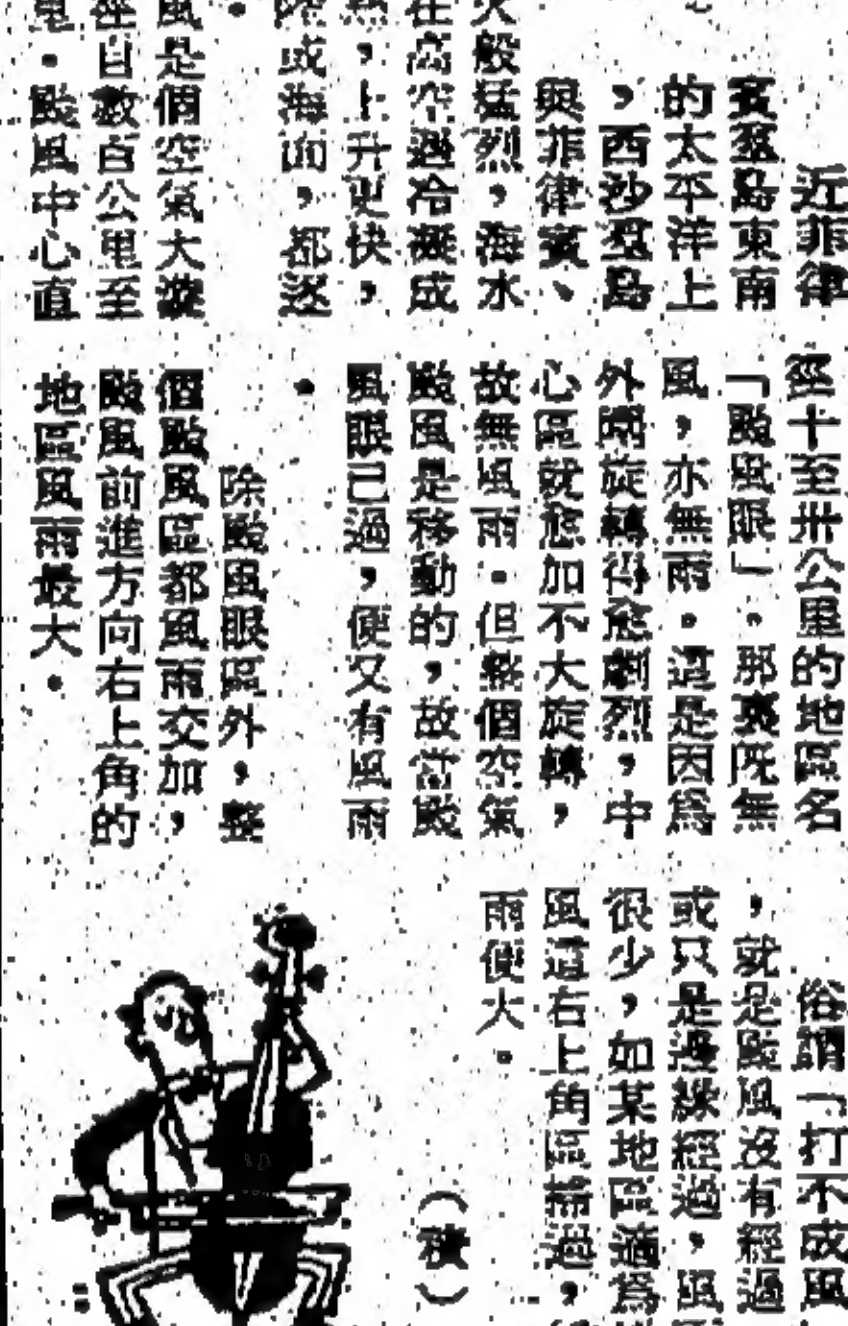 近菲律
賓羣島東南
的太平洋上
，西沙羣島
與菲律賓、
般猛烈，海水
在高空遇冷凝成
熱，上升更快，
陸或海面，都逐
。
風是個空氣大漩
徑自數百公里至
里。颱風中心直
徑十至卅公里的地區名
「颱風眼」。那裏既無
風，亦無雨。這是因爲
外圍旋轉得愈劇烈，中
心區就愈加不大旋轉，
故無風雨。但整個空氣
颱風是移動的，故當颱
風眼已過，便又有風雨
。
除颱風眼區外，整
個颱風區都風雨交加，
颱風前進方向右上角的
地區風雨最大。
俗謂「打不成風
，就是颱風沒有經過
或只是邊緣經過，風
很少，如某地區適爲
風這右上角區掃過，
雨便大。
（積）